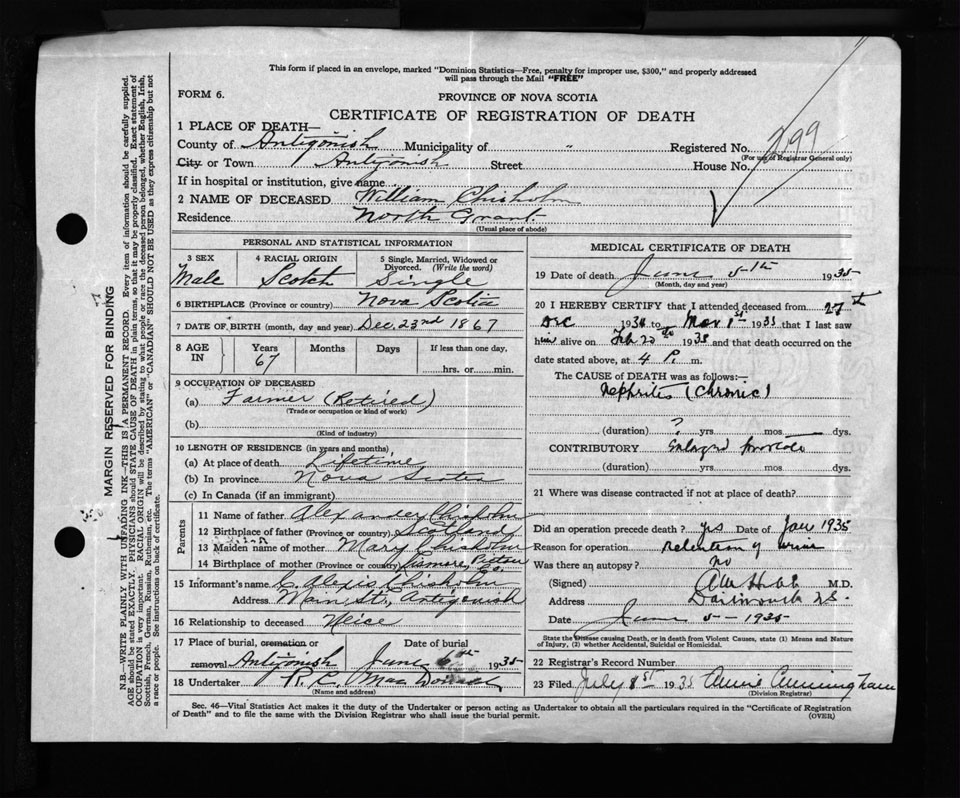 This form if placed in an envelope, marked "Dominion Statistics—Free, penalty for improper use, $300," and properly addressed
will pass through the Mail "FREE"
FORM 6.
PROVINCE OF NOVA SCOTIA
CERTIFICATE OF REGISTRATION OF DEATH
1 PLACE OF DEATH—
County of Antigonish Municipality of " Registered No. 799
(For use of Registrar General only)
City or Town Antigonish Street House No.
If in hospital or institution, give name
2 NAME OF DECEASED William Chisholm
Residence North Grant
(Usual place of abode)
PERSONAL AND STATISTICAL INFORMATION
3 SEX 4 RACIAL ORIGIN 5 Single, Married, Widowed or Divorced. (Write the word)
Male Scotch Single
6 BIRTHPLACE (Province or country) Nova Scotia
7 DATE OF BIRTH (month, day and year) Dec. 23nd 1867
8 AGE IN Years Months Days If less than one day,
67 hrs. or min.
9 OCCUPATION OF DECEASED
(a) Farmer (Retired)
(Trade or occupation or kind of work)
(b)
(Kind of industry)
10 LENGTH OF RESIDENCE (in years and months)
(a) At place of death Lifetime
(b) In province Nova Scotia
(c) In Canada (if an immigrant)
Parents
11 Name of father Alexander Chisholm
12 Birthplace of father Scotland
13 Maiden name of mother Mary Chisholm
14 Birthplace of mother (Province or country) Lismore, Pictou Co.
15 Informant's name C. Alexis Chisholm
Address Main St., Antigonish
16 Relationship to deceased Neice
17 Place of burial, cremation or Date of burial
removal Antigonish June 1935
18 Undertaker R. C. MacDonald
(Name and address)
MEDICAL CERTIFICATE OF DEATH
19 Date of death June 5th 1935
(Month, day and year)
20 I HEREBY CERTIFY that I attended deceased from 27th
Dec 1934 to Mar 1st 1935 that I last saw
him alive on Feb 20th 1935 and that death occurred on the
date stated above, at 4 P. m.
The CAUSE OF DEATH was as follows:—
Nephrites (Chronic)
(duration) ? yrs. mos. dys.
CONTRIBUTORY Enlarged
(duration) yrs. mos. dys.
21 Where was disease contracted if not at place of death?
Did an operation precede death? yes Date of Jan 1935
Reason for operation retention of urine
Was there an autopsy? no
(Signed) M.D.
Address Dartmouth N.S.
Date June 5 - 1935
State the Disease causing Death, or in death from Violent Causes, state (1) Means and Nature
of Injury, (2) whether Accidental, Suicidal or Homicidal.
22 Registrar's Record Number
23 Filed July 81st 1935 Annie Cunningham
(Division Registrar)
Sec. 46—Vital Statistics Act makes it duty of the Undertaker or person acting as Undertaker to obtain all the particulars required in the "Certificate of Registration
of Death" and to file the same with the Division Registrar who shall issue the burial permit. (OVER)
MARGIN RESERVED FOR BINDING
N.B.—WRITE PLAINLY WITH UNFADING INK—THIS IS A PERMANENT RECORD. Every item of information should be carefully supplied.
AGE should be stated EXACTLY. PHYSICIANS should STATE CAUSE OF DEATH in plain terms, so that it may be properly classified. Exact statement of
OCCUPATION is very important. RACIAL ORIGIN will be described by stating to what people or race the deceased person belonged, whether English, Irish,
Scottish, French, German, Russian, Ruthenian, etc. The terms "AMERICAN" or "CANADIAN" SHOULD NOT BE USED as they express citizenship but not
a race or people. See instructions on back of certificate.